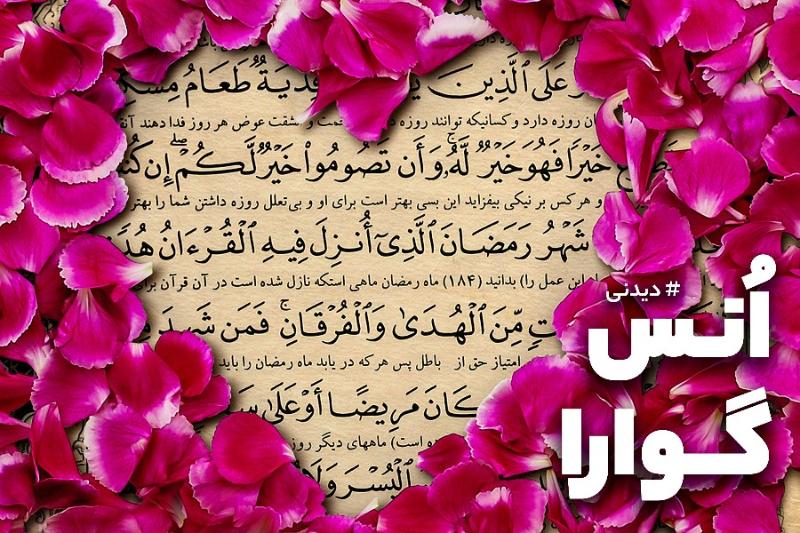 عَلَى ٱلَّذِينَ فِدۡيَةٞ طَعَامُ
روزه دارد و کسانیکه توانند روزه و مشقت عوض هر روز فدا دهند
خَيۡرٗا فَهُوَ خَيۡرٞ لَّهُۥۚ وَأَن تَصُومُواْ خَيۡرٞ لَّكُمۡ إِن
و هر کس بر نیکی بیفزاید این بسی بهتر است برای او و بی‌تعلل روزه داشتن شما را بهتر
شَهۡرُ رَمَضَانَ ٱلَّذِيٓ أُنزِلَ فِيهِ ٱلۡقُرۡءَانُ
این عمل را) بدانید (۱۸۴) ماه رمضان ماهی استکه نازل شده است در آن قرآن
مِّنَ ٱلۡهُدَىٰ وَٱلۡفُرۡقَانِۚ فَمَن شَهِدَ
امتیاز حق از باطل پس هر که در یابد ماه رمضان را باید
كَانَ مَرِيضًا أَوۡ عَلَىٰ
است) ماههای دیگر روز
ٱلۡيُسۡرَ وَلَا
# دیدنی
اُنس
گوارا